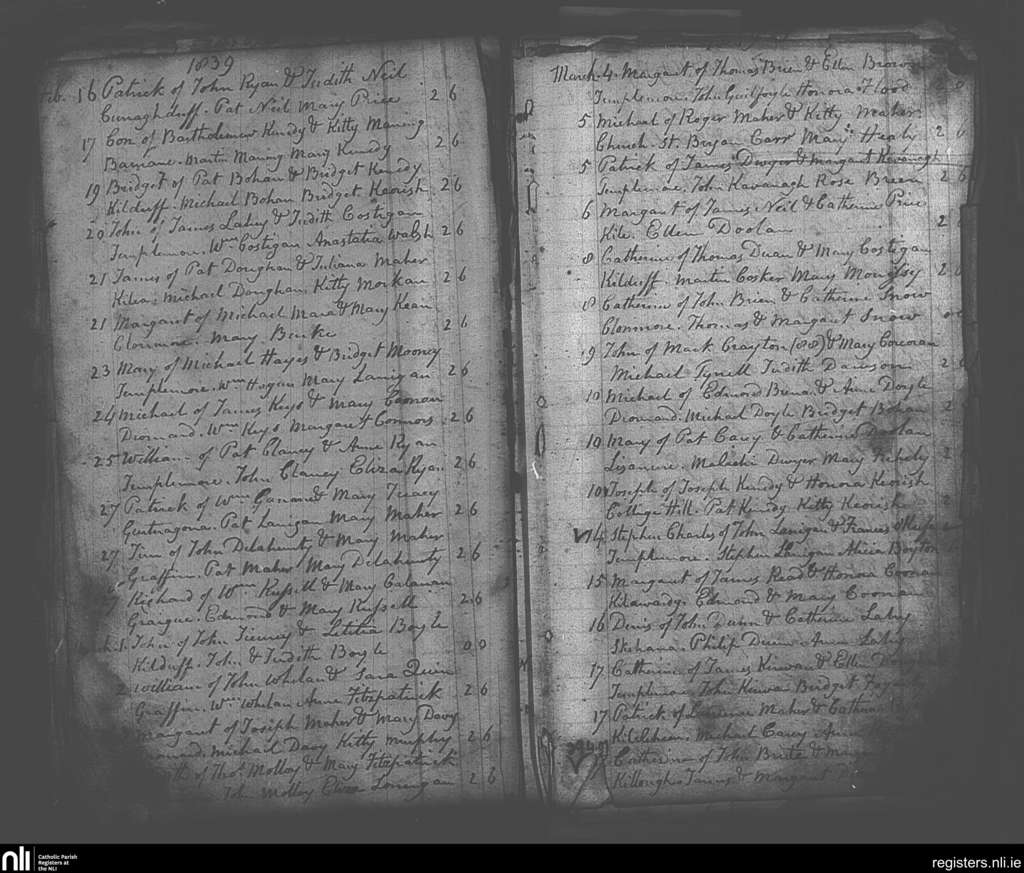 1839
Feb. 16 Patrick of John Ryan & Judith Neil
Cunaghduff. Pat Neil Mary Price 2 6
17 Con of Bartholemew Kenedy & Kitty Maning
Barnane. Martin Maning Mary Kenedy 2 6
19 Bridget of Pat Bohan & Bridget Kenedy
Kilduff. Michael Bohan Bridget Keorish 2 6
20 John of James Lahey & Judith Costigan
Templemore. Wm Costigan Anastatia Walsh 2 6
21 James of Pat Doughan & Juliana Maher
Kilea. Michael Doughan Kitty Morkan 2 6
21 Margaret of Michael Mara & Mary Kean
Clonmore. Mary Burke 2 6
23 Mary of Michael Hayes & Bridget Mooney
Templemore. Wm Hogan Mary Lanigan 2 6
24 Michael of James Keys & Mary Coonan
Dromard. Wm Keys Margaret Connors 2 6
25 William of Pat Clancy & Anne Ryan
Templemore. John Clancy Eliza Ryan 2 6
27 Patrick of Wm & Mary Treacy
Pat Lanigan Mary Maher 2 6
27 of John Delahunty & Mary Maher
Graffin. Pat Maher Mary Delahunty 2 6
Richard of Wm Russell & Mary Calanan
Graigue. Edmond & Mary Russell 2 6
1. John of John Tierney & Letitia Boyle
Kilduff. John & Judith Boyle 0 0
2 William of John Whelan & Sara Quin
Graffin. Wm Whelan Anne Fitzpatrick 2 6
Margaret of Joseph Maher & Mary Davy
Michael Davy Kitty Murphy 2 6
of Thos Molloy & Mary Fitzpatrick
John Molloy Eliza Lonnigan 2 6
March. 4. Margaret of Thomas Breen & Ellen Brown
Templemore. John Guilfoyle Honora Flood
5 Michael of Roger Maher & Kitty Maher
Church St. Bryan Carr Mary Healy 2 6
5 Patrick of James Dwyer & Margaret Kavanagh
Templemore. John Kavanagh Rose Breen 2 6
6 Margaret of James Neil & Catherine Price
Kile. Ellen Doolan 2
8 Catherine of Thomas Duan & Mary Costigan
Kilduff. Martin Cosker Mary 2 6
8 Catherine of John Brien & Catherine Snow
Clonmore. Thomas & Margaret Snow
9 John of Mark Crayton (88) & Mary Corcoran
Michael Tynell Judith Dawson 2 6
10 Michael of Edmond & Anne Doyle
Dromard. Michael Doyle Bridget Bohan 2
10 Mary of Pat Carey & Catherine Doolan
Lisanure. Malachi Dwyer Mary 2
10 Joseph of Joseph Kenedy & Honora Keorish
College Hill. Pat Kenedy Kitty Keorish
14 Stephen Charles of John Lanigan & Frances O'Keefe
Templemore. Stephen Lanigan Alicia Boyton
15 Margaret of James Read & Honora Coonan
Kilawardy. Edmond & Mary Coonan
16 Denis of John Dunn & Catherine Lahy
Skehana. Philip Dunn Anne Lahy
17 Catherine of James Kirwan & Ellen
Templemore John Kirwan Bridget
17 Patrick of Laurence Maher & Catherine
Michael Carey
Catherine of John Butle &
Killough. James & Margaret
nli Catholic Parish
Registers at
the NLI
registers.nli.ie